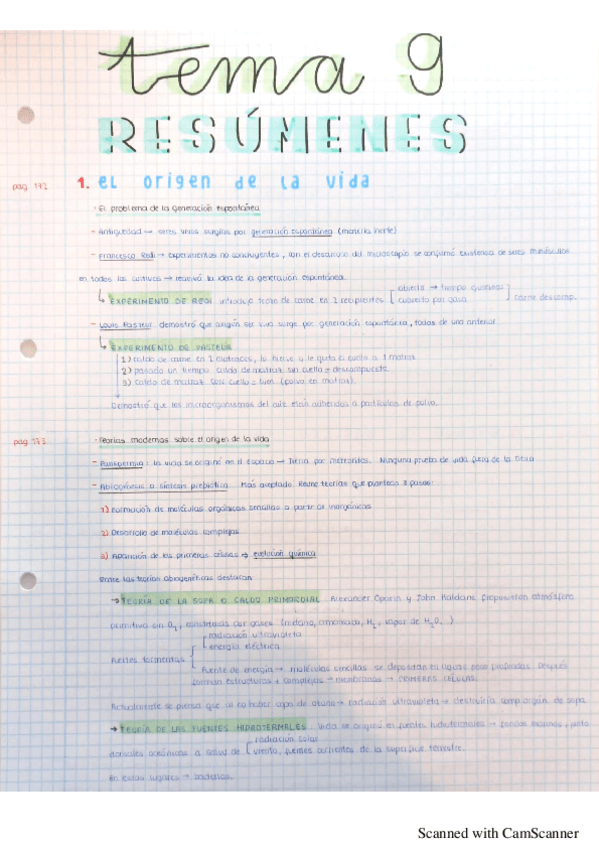 tema 9
RESÚMENES
pag. 172 1. EL origen de la vida
· El problema de la generación espontánea
- Antigüedad → seres vivos surgían por generación espontánea (materia inerte)
- Francesco Redi → experimentos no concluyentes, con el desarrollo del microscopio se confirmó existencia de seres minúsculos
en todos los cultivos → reavivó la idea de la generación espontánea.
↳ EXPERIMENTO DE REDI introdujo trozo de carne en 2 recipientes [ abierto → tiempo gusanos
cubierto por gasa ] carne descomp.
- Louis Pasteur demostró que ningún ser vivo surge por generación espontánea, todos de uno anterior
↳ EXPERIMENTO DE PASTEUR
1) caldo de carne en 2 matraces, lo hierve y le quita el cuello a 1 matraz.
2) pasado un tiempo caldo de matraz sin cuello = descompuesto.
3) Caldo de matraz con cuello = bien (polvo en matraz).
Demostró que los microorganismos del aire están adheridos a partículas de polvo.
pag 173 · Teorías modernas sobre el origen de la vida
- Panspermia: la vida se originó en el espacio → Tierra por meteoritos. Ninguna prueba de vida fuera de la Tierra
- Abiogénesis o síntesis prebiótica. Más aceptado. Reúne teorías que plantean 3 pasos:
1) Formación de moléculas orgánicas sencillas a partir de inorgánicas
2) Desarrollo de moléculas complejas
3) Aparición de las primeras células → evolución química
Entre las teorías abiogenéticas destacan
→ TEORÍA DE LA SOPA O CALDO PRIMORDIAL. Alexander Oparin y John Haldane propusieron atmósfera
primitiva sin O₂, constituida por gases (metano, amoniaco, H₂, vapor de H₂O...)
Fuertes tormentas [ radiación ultravioleta
energía eléctrica
fuente de energía → moléculas sencillas se depositan en aguas poco profundas. Después
forman estructuras + complejas → membranas → PRIMERAS CÉLULAS.
Actualmente se piensa que al no haber capa de ozono → radiación ultravioleta → destruiría comp. orgán. de sopa
→ TEORÍA DE LAS FUENTES HIDROTERMALES. Vida se originó en fuentes hidrotermales → fondos marinos, junto
dorsales oceánicas a salvo de [ radiación solar
viento, fuentes corrientes de la superficie terrestre.
En estos lugares → bacterias.
Scanned with CamScanner